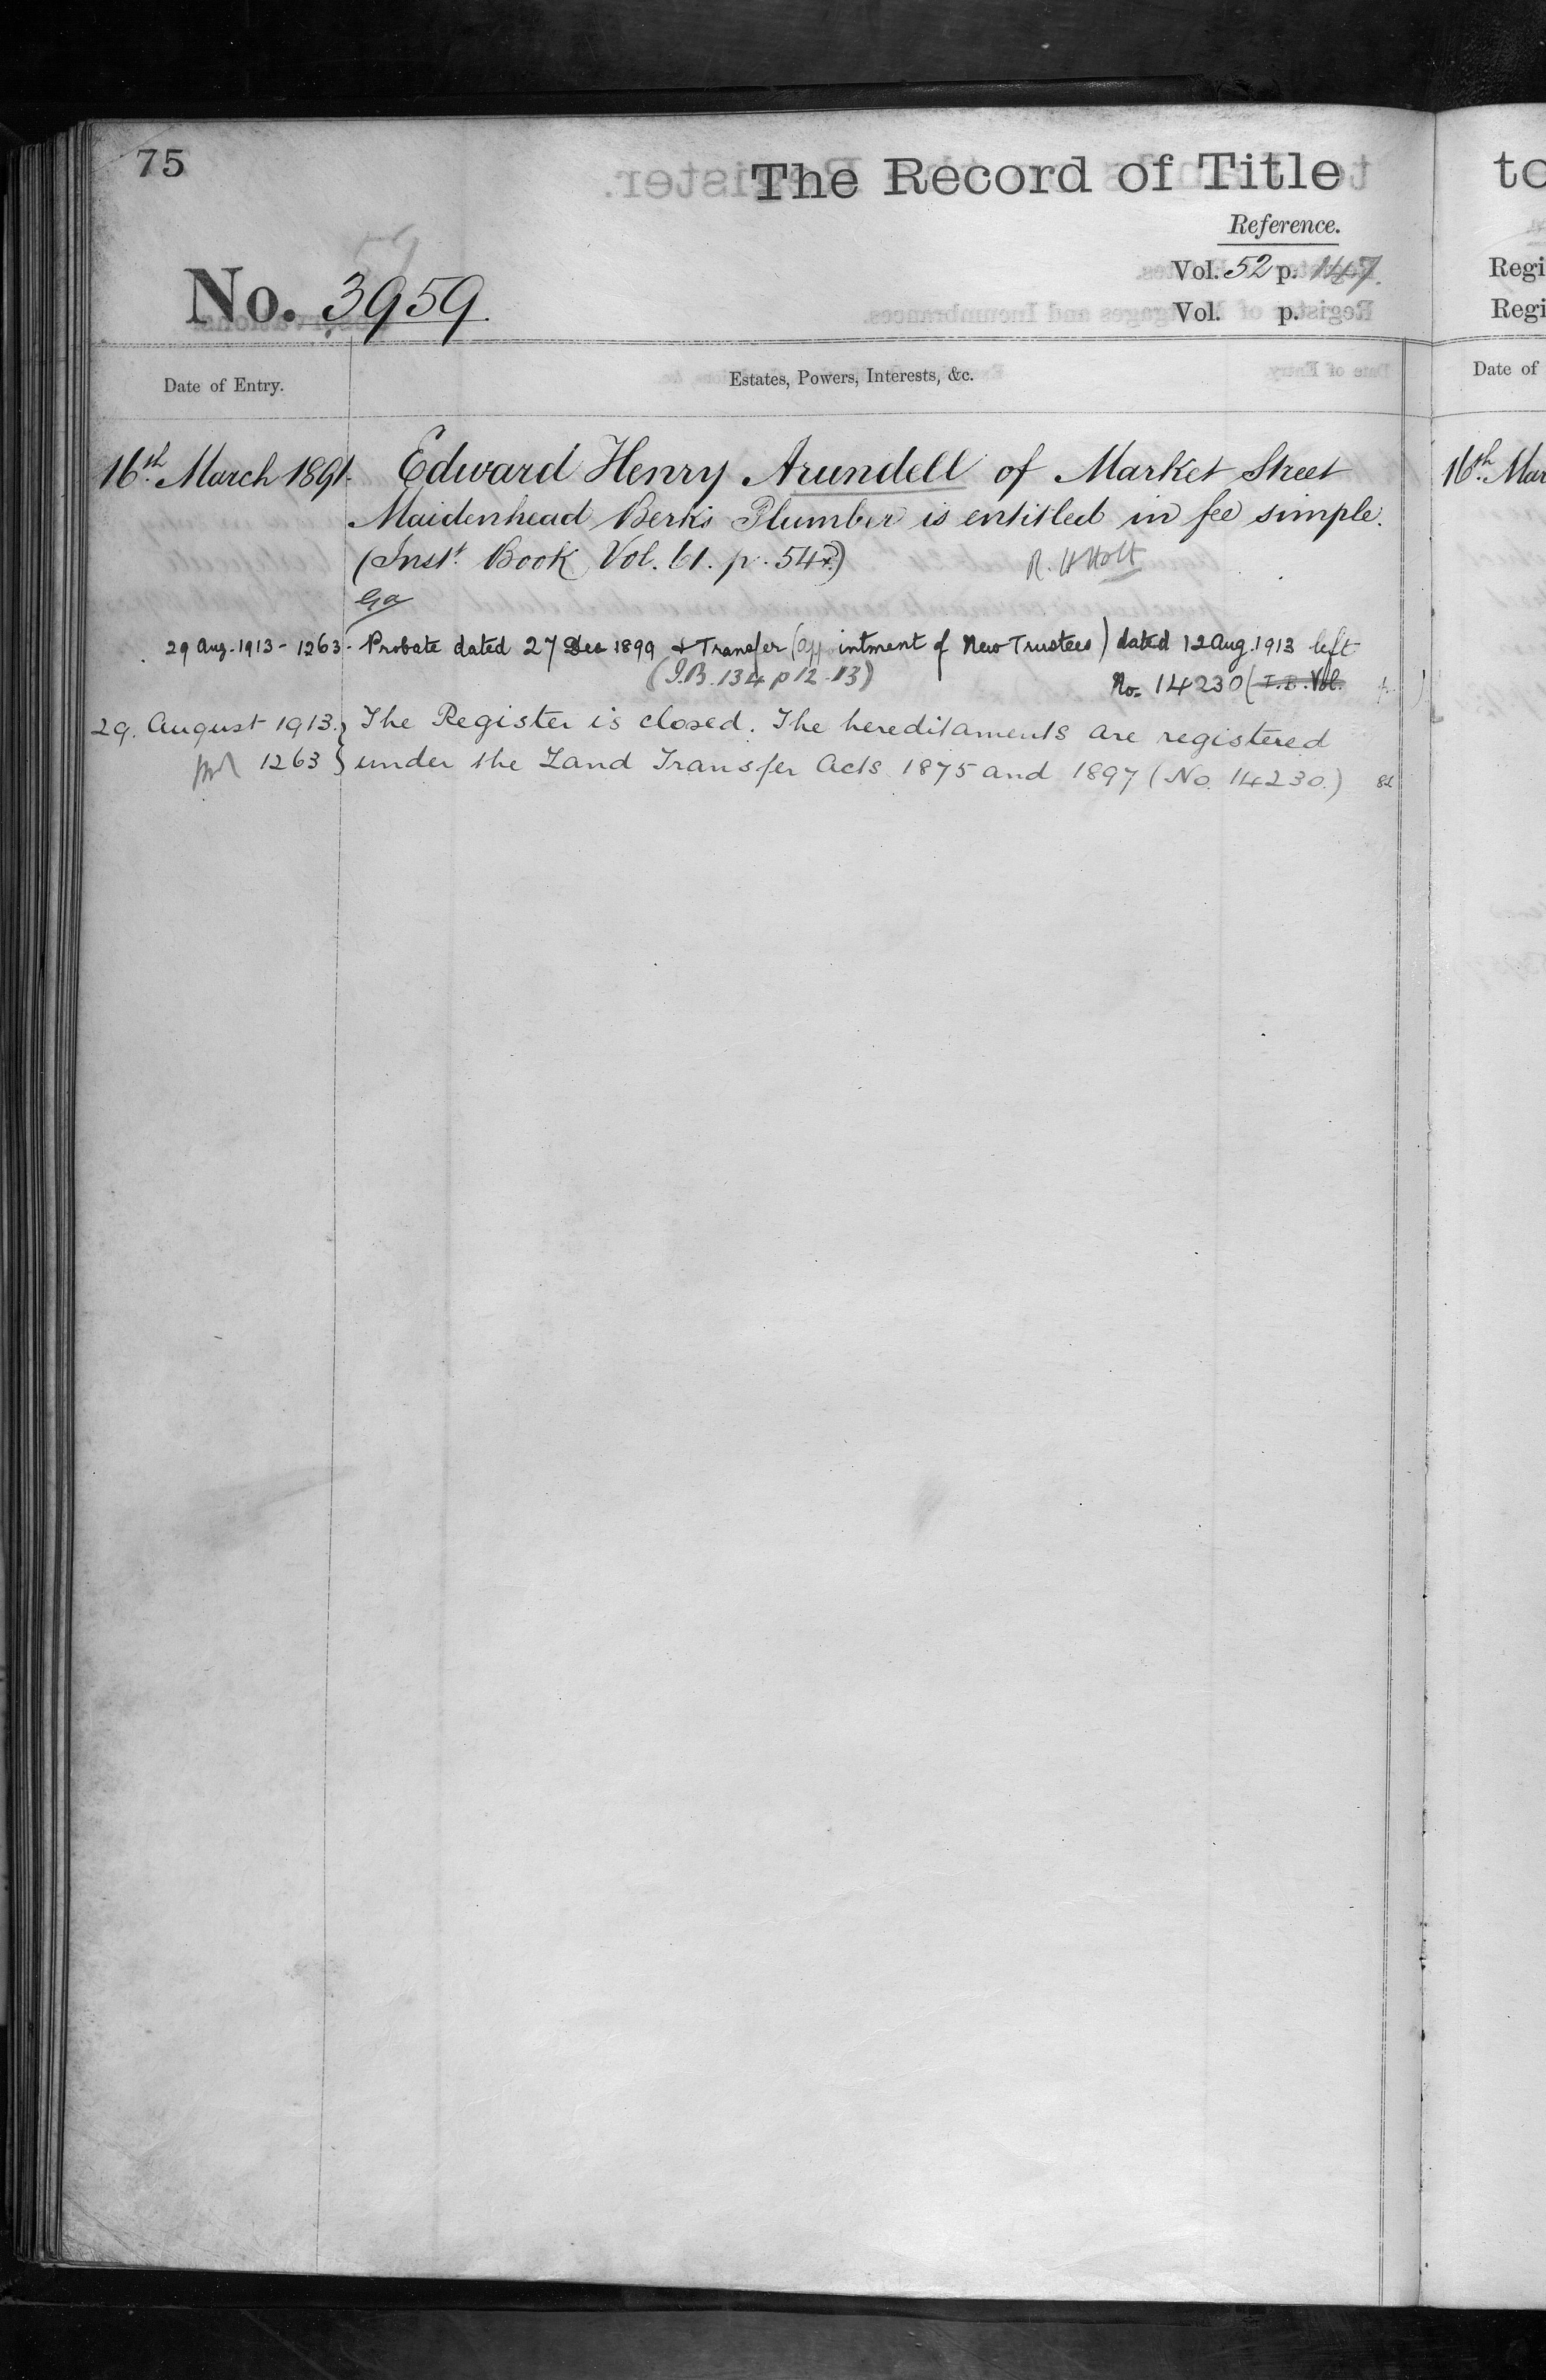 75
The Record of Title
Reference.
Vol. 52 p. 147.
No. 3959.
Vol. p.
Date of Entry.
Estates, Powers, Interests, &c.
16th March 1891. Edward Henry Arundell of Market Street
Maidenhead Berks Plumber is entitled in fee simple.
(Inst. Book Vol. 61. p. 54
R. H Holt
29 Aug. 1913 - 1263. Probate dated 27 Dec 1899 & Transfer (Appointment of New Trustees) dated 12 Aug. 1913 left
(I.B. 134 p 12-13) No. 14230 (I.B. Vol.
29. August 1913. The Register is closed. The hereditaments are registered
1263 } under the Land Transfer Acts 1875 and 1897 (No. 14230.)
to
Regi
Regi
Date of
16th Mar